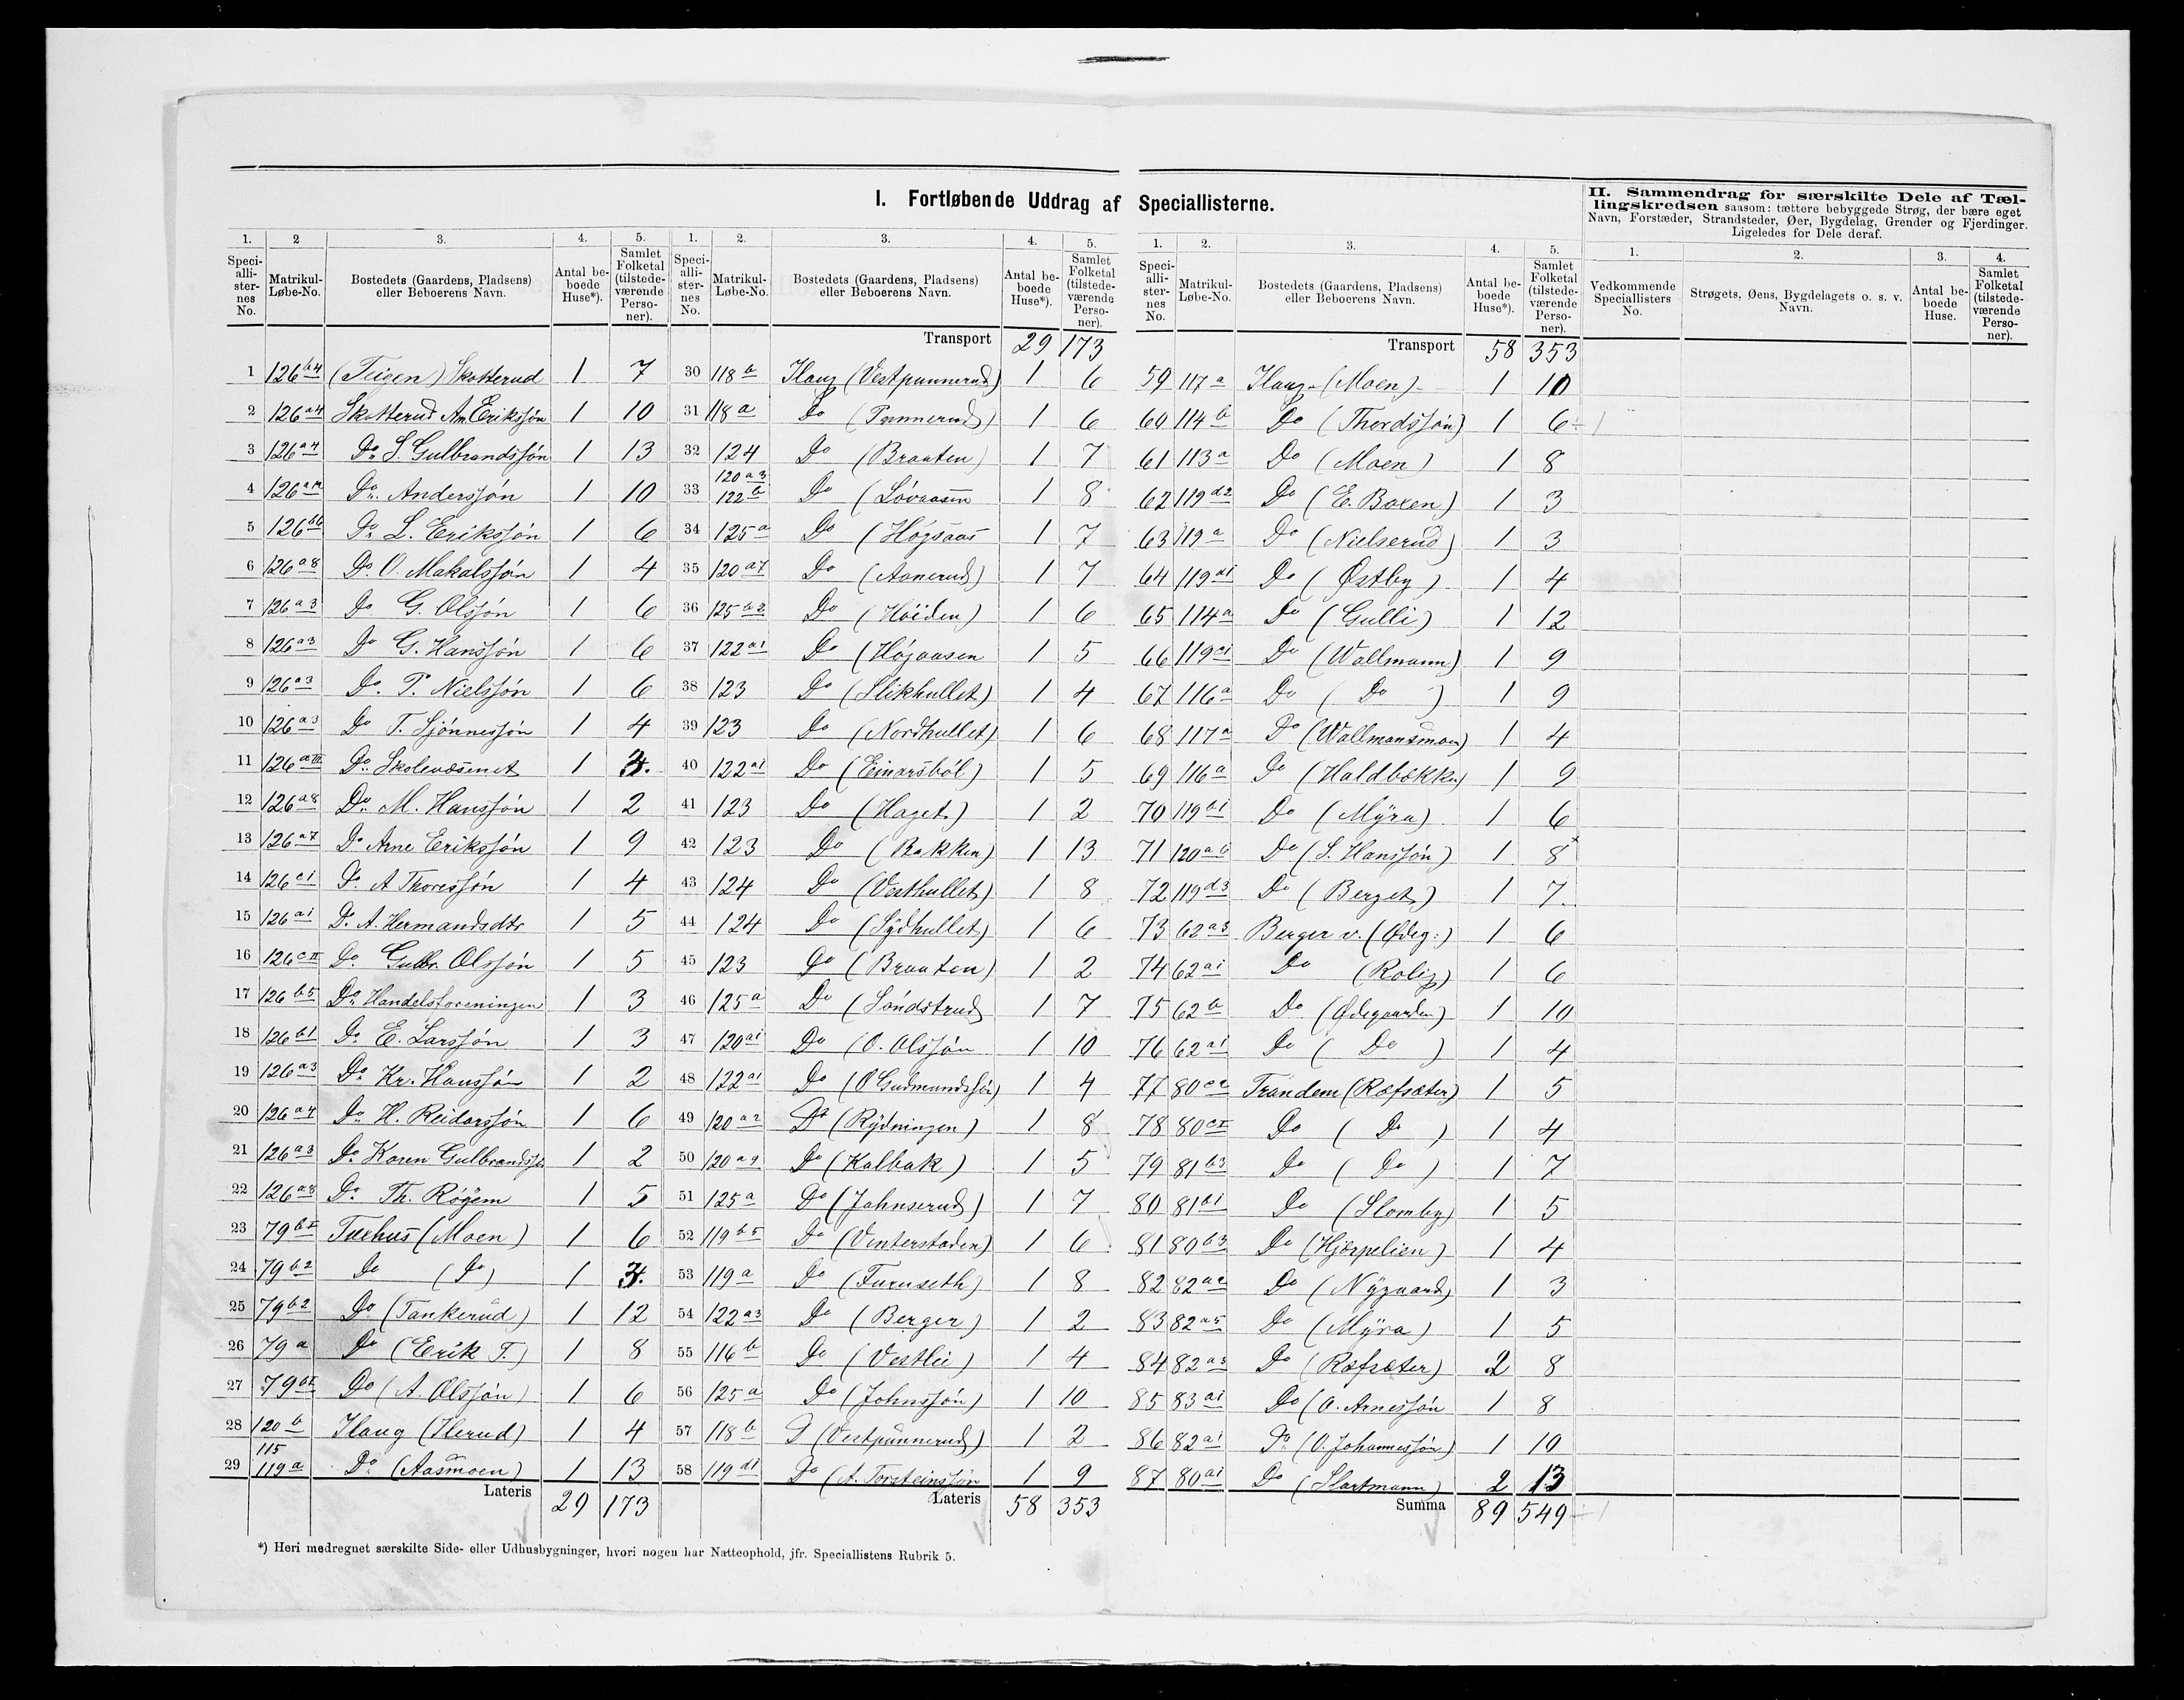 I. Fortløbende Uddrag af Speciallisterne.
1. 2 3. 4. 5.
Specialli-sternes No. Matrikul-Løbe-No. Bostedets (Gaardens, Pladsens) eller Beboerens Navn. Antal beboede Huse*). Samlet Folketal (tilstedeværende Personer).
1 126 b4 (Teigen) Skotterud 1 7
2 126 a4 Skotterud Am Eriksøn 1 10
3 126 a4 Do S. Gulbrandsøn 1 13
4 126 Do Andersøn 1 10
5 126 b6 Do L. Eriksøn 1 6
6 126 a8 Do O. Makalsøn 1 4
7 126 a3 Do G. Olsøn 1 6
8 126 a3 Do G. Hansøn 1 6
9 126 a3 Do P. Nielsøn 1 6
10 126 a3 Do T. Sjønnesøn 1 4
11 126 a Do Skolevæsenet 1 4.
12 126 a8 Do M. Hansøn 1 2
13 126 a7 Do Arne Eriksøn 1 9
14 126 c1 Do A Thoresøn 1 4
15 126 a1 Do A. Hermandsdtr 1 5
16 126 c II Do Gulbr. Olsøn 1 5
17 126 b5 Do Handelsforeningen 1 3
18 126 b1 Do E. Larsøn 1 3
19 126 a3 Do Kr. Hansøn 1 2
20 126 a4 Do H. Reidarsøn 1 6
21 126 a3 Do Karen Gulbrandsd 1 2
22 126 a8 Do Th. Røgem 1 5
23 79 b I Tuehus (Moen) 1 6
24 79 b2 Do (Do) 1 4.
25 79 b2 Do (Tankerud) 1 12
26 79 a Do (Erik T.) 1 8
27 79 b I Do (A. Olsøn) 1 6
28 120 b Haug (Ilerud) 1 4
29 115 119 a Do (Aasmoen) 1 13
Lateris 29 173
1. 2. 3. 4. 5.
Specialli-sternes No. Matrikul-Løbe-No. Bostedets (Gaardens, Pladsens) eller Beboerens Navn. Antal beboede Huse*). Samlet Folketal (tilstedeværende Personer).
Transport 29 173
30 118 b Haug (Vestpunnerud) 1 6
31 118 a Do (Punnerud) 1 6
32 124 Do (Braaten) 1 7
33 120 a3 122 b Do (Løvaasen 1 8
34 125 a Do (Høgsaas 1 7
35 120 a7 Do (Aanerud) 1 7
36 125 b2 Do (Høiden) 1 6
37 122 a1 Do (Høgaasen 1 5
38 123 Do (Slikhullet) 1 4
39 123 Do (Nordhullet) 1 6
40 122 a1 Do (Einarsbøl) 1 5
41 123 Do (Haget) 1 2
42 123 Do (Bakken) 1 13
43 124 Do (Vesthullet) 1 8
44 124 Do (Sydhullet) 1 6
45 123 Do (Braaten) 1 2
46 125 a Do (Søndstrud 1 7
47 120 a1 Do (O. Olsøn 1 10
48 122 a1 Do (O Gudmundsøn) 1 4
49 120 a2 Do (Rydningen) 1 8
50 120 a9 Do (Kalbak) 1 5
51 125 a Do (Johnserud) 1 7
52 119 b5 Do (Vinterstaden) 1 6
53 119 a Do (Furuseth) 1 8
54 122 a3 Do (Berger) 1 2
55 116 b Do (Vestlie) 1 4
56 125 a Do (Johnsøn) 1 10
57 118 b D (Vestpunnerud) 1 2
58 119 d1 Do (A. Torsteinsøn 1 9
Lateris 58 353
1. 2. 3. 4. 5.
Specialli-sternes No. Matrikul-Løbe-No. Bostedets (Gaardens, Pladsens) eller Beboerens Navn. Antal beboede Huse*). Samlet Folketal (tilstedeværende Personer).
Transport 58 353
59 117 a Haug (Moen) 1 10
60 114 b Do (Thordsøn) 1 6 ÷1
61 113 a Do (Moen) 1 8
62 119 d2 Do (E. Boxen) 1 3
63 119 a Do (Nielserud) 1 3
64 119 d1 Do (Østby) 1 4
65 114 a Do (Gulli) 1 12
66 119 c1 Do (Wallmann) 1 9
67 116 a Do (Do) 1 9
68 117 a Do (Wallmansmoen) 1 4
69 116 a Do (Haldbakken) 1 9
70 119 b1 Do (Myra) 1 6
71 120 a6 Do (S. Hansøn) 1 8
72 119 d3 Do (Berget) 1 7
73 62 a3 Berger v. (Ødeg:) 1 6
74 62 a1 Do (Rolig) 1 6
75 62 b Do (Ødegaarden) 1 10
76 62 a1 Do (Do) 1 4
77 80 c2 Trandem (Ræfsæter) 1 5
78 80 c I Do (Do) 1 4
79 81 b3 Do (Do) 1 7
80 81 b1 Do (Slomby) 1 5
81 80 b3 Do (Hjerpelien) 1 4
82 82 a2 Do (Nygaard) 1 3
83 82 a5 Do (Myra) 1 5
84 82 a3 Do (Ræfsæter) 2 8
85 83 a1 Do (O. Arnesøn 1 8
86 82 a1 Do (O. Johannesøn) 1 10
87 80 a1 Do (Slartmann) 2 13
Summa 89 549 ÷1
II. Sammendrag for særskilte Dele af Tællingskredsen saasom: tættere bebyggede Strøg, der bære eget
Navn, Forstæder, Strandsteder, Øer, Bygdelag, Grender og Fjerdinger.
Ligeledes for Dele deraf.
1. 2. 3. 4.
Vedkommende Speciallisters No. Strøgets, Øens, Bygdelagets o. s. v. Navn. Antal beboede Huse. Samlet Folketal (tilstedeværende Personer).
*) Heri medregnet særskilte Side- eller Udhusbygninger, hvori nogen har Natteophold, jfr. Speciallistens Rubrik 5.